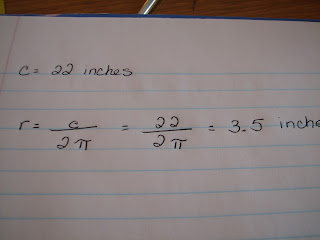 c = 22 inches
r = c/2π = 22/2π = 3.5 inche